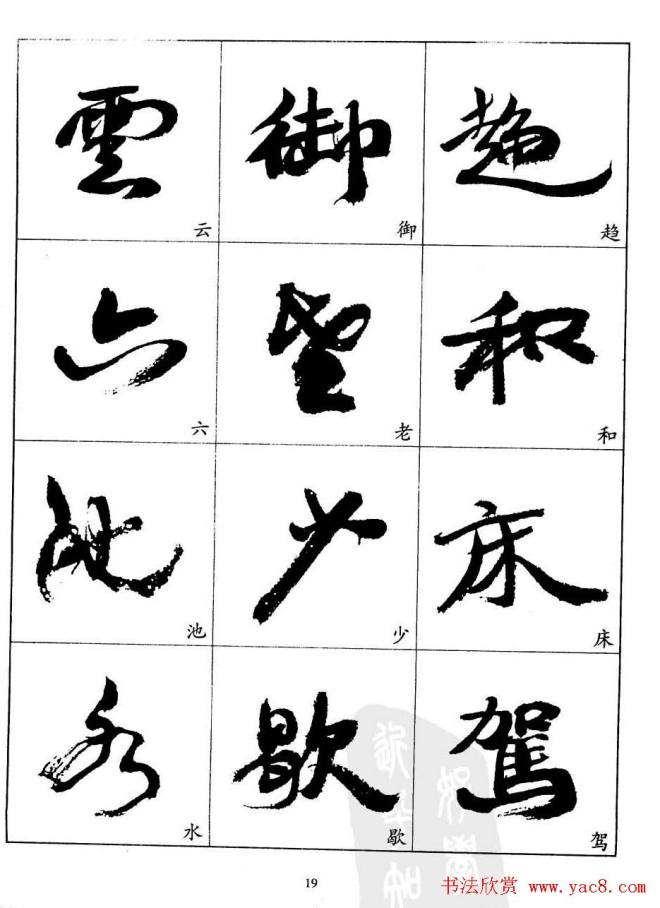 雲 御 趨
云 御 趋
六 和
六 老 和
池 少 床
池 少 床
水 歇 駕
水 歇 驾
19
书法欣赏 www.yac8.com